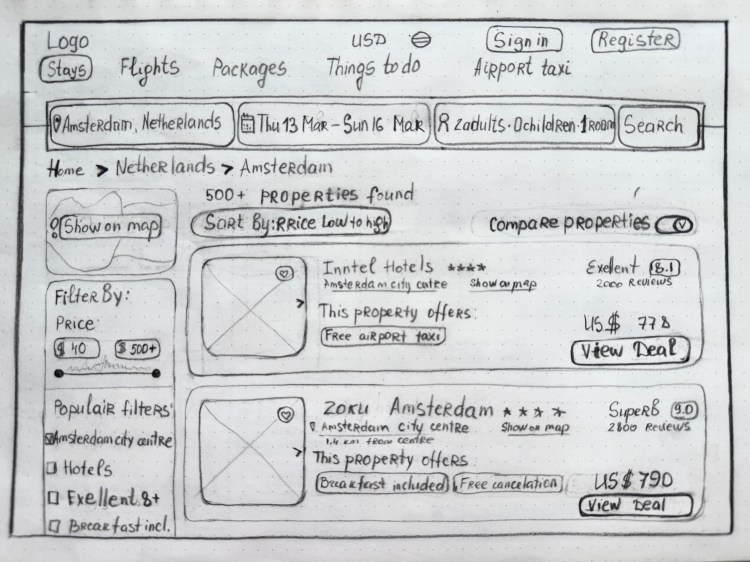 Logo USD Sign in Register
Stays Flights Packages Things to do Airport taxi
Amsterdam, Netherlands Thu 13 Mar - Sun 16 Mar 2 adults · 0 children · 1 Room Search
Home > Netherlands > Amsterdam
500+ properties found
Show on map
Sort By: Price Low to high
Compare properties
Filter By:
Price:
$ 40 $ 500+
Populair filters:
Amsterdam city centre
Hotels
Exellent 8+
Breakfast incl.
Inntel Hotels ★★★★
Amsterdam city centre Show on map
This property offers:
Free airport taxi
Exellent 8.1
2000 Reviews
US $ 778
View Deal
Zoku Amsterdam ★★★★
Amsterdam city centre Show on map
1.4 km from centre
This property offers
Breakfast included Free cancelation
Superb 9.0
2800 Reviews
US $ 790
View Deal